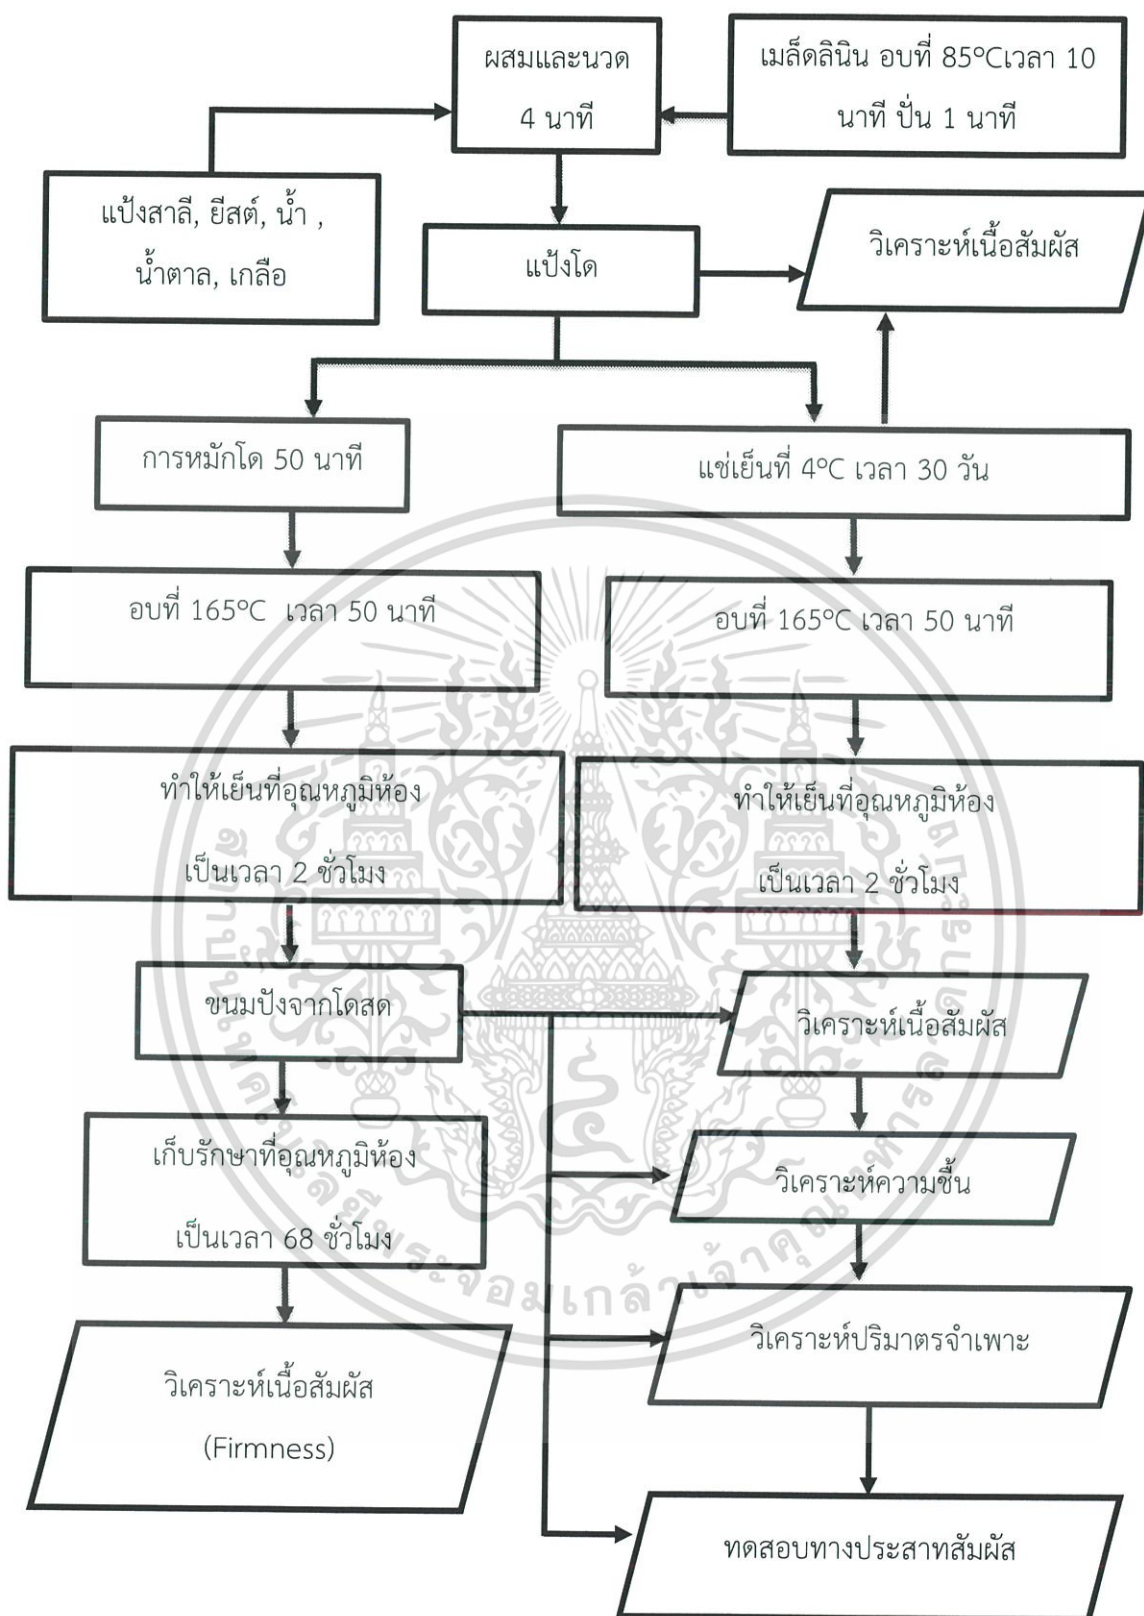 ผสมและนวด
4 นาที
เมล็ดลินิน อบที่ 85°Cเวลา 10
นาที ปั่น 1 นาที
แป้งสาลี, ยีสต์, น้ำ ,
น้ำตาล, เกลือ
แป้งโด
วิเคราะห์เนื้อสัมผัส
การหมักโด 50 นาที
แช่เย็นที่ 4°C เวลา 30 วัน
อบที่ 165°C เวลา 50 นาที
อบที่ 165°C เวลา 50 นาที
ทำให้เย็นที่อุณหภูมิห้อง
เป็นเวลา 2 ชั่วโมง
ทำให้เย็นที่อุณหภูมิห้อง
เป็นเวลา 2 ชั่วโมง
ขนมปังจากโดสด
วิเคราะห์เนื้อสัมผัส
เก็บรักษาที่อุณหภูมิห้อง
เป็นเวลา 68 ชั่วโมง
วิเคราะห์ความชื้น
วิเคราะห์ปริมาตรจำเพาะ
วิเคราะห์เนื้อสัมผัส
(Firmness)
ทดสอบทางประสาทสัมผัส
สถาบันเทคโนโลยีพระจอมเกล้าเจ้าคุณทหารลาดกระบัง